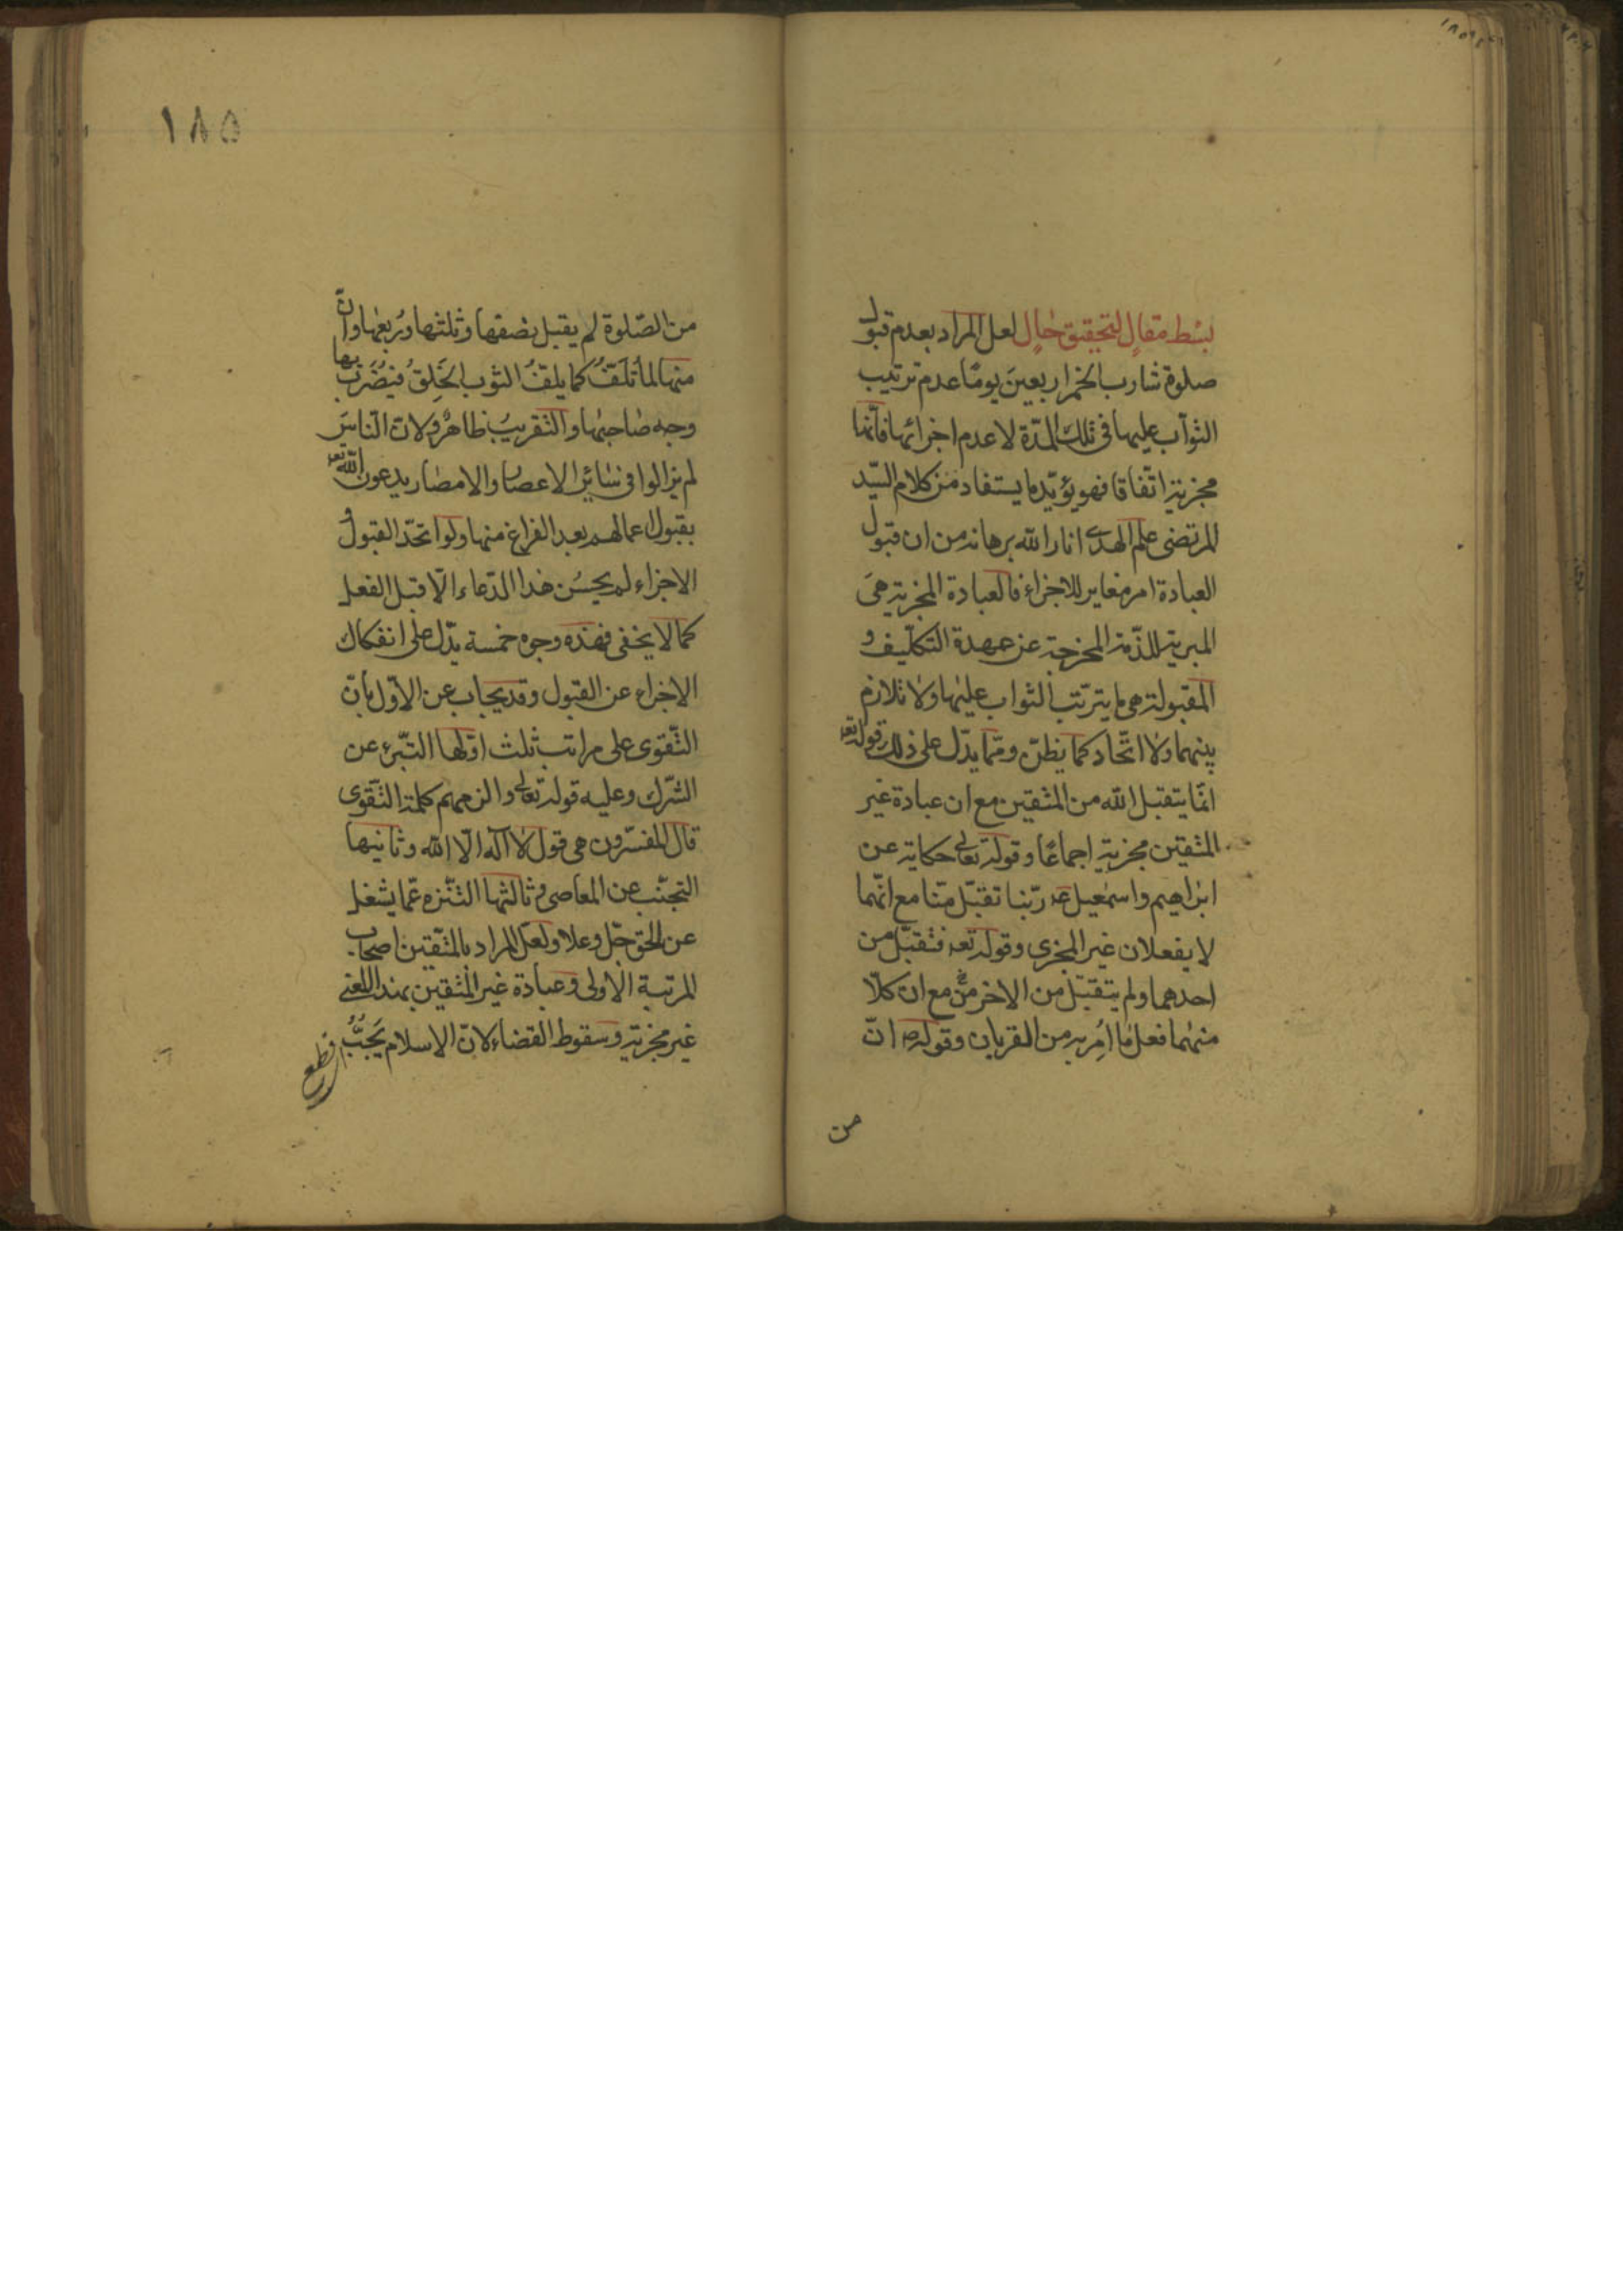 بسط مقالٍ لتحقيق حالٍ لعل المراد بعدم قبول
صلوة شارب الخمر اربعينَ يومًا عدم ترتيب
الثوآب عليها فى تلك المدّة لا عدم اجزائها فانّها
مجزية اتّفاقا فهو يؤيّد ما يستفاد من كلام السّيّد
المرتضى علم الهدى انار الله برهانه من ان قبول
العبادة امر مغاير للاجزاء فالعبادة المجزية هىَ
المبرية للذّمة المخرجة عن عهدة التكليف و
المقبولة هى ما يترتّب الثواب عليها ولا تلازم
بينهما ولا اتّحاد كما يظنّ وممّا يدّل على ذلك قوله تعه
انّما يتقبل الله من المتّقين مع ان عبادة غير
المتّقين مجزية اجماعًا وقوله تعالى حكاية عن
ابراهيم واسمعيل عه ربّنا تقبّل منّا مع انّهما
لا يفعلان غير المجزى وقوله تعه فتقبّل من
احدهما ولم يتقبّل من الاخر مع ان كلّا
منهما فعل ما اُمِر به من القربان وقوله ص انّ
من
١٨٥
من الصّلوة لم يقبل نصفها وثلثها ورُبعها وانّ
منها لما تُلَفّ كما يلفّ الثوب الخَلِقُ فيُضرَب بها
وجه صاحبها والتقريب ظاهرٌ ولانّ النّاسَ
لم يزالوا فى سائر الاعصار والامصار يدعون الله تعه
بقبول اعمالهم بعد الفراغ منها ولو اتحّد القبول و
الاجزاء لم يحسُن هذا الدّعاء الّا قبل الفعل
كما لا يخفى فهذه وجوه خمسة يدّل على انفكاك
الاجزاء عن القبول وقد يجاب عن الاوّل بانّ
التّقوى على مراتب ثلث اوّلها التبّرى عن
الشّرك وعليه قوله تعالى والزمهم كلمة التّقوى
قال المفسّرون هى قول لا آله الّا الله وثانيها
التجنّب عن المعاصى وثالثها التّنزه عمّا يشغل
عن الحق جّل وعلا ولعّل المراد بالمتّقين اصحاب
المرتبة الاولى وعبادة غير المتّقين بهذا المعنى
غير مجزية وسقوط القضاء لانّ الإسلام يَجُبُّ